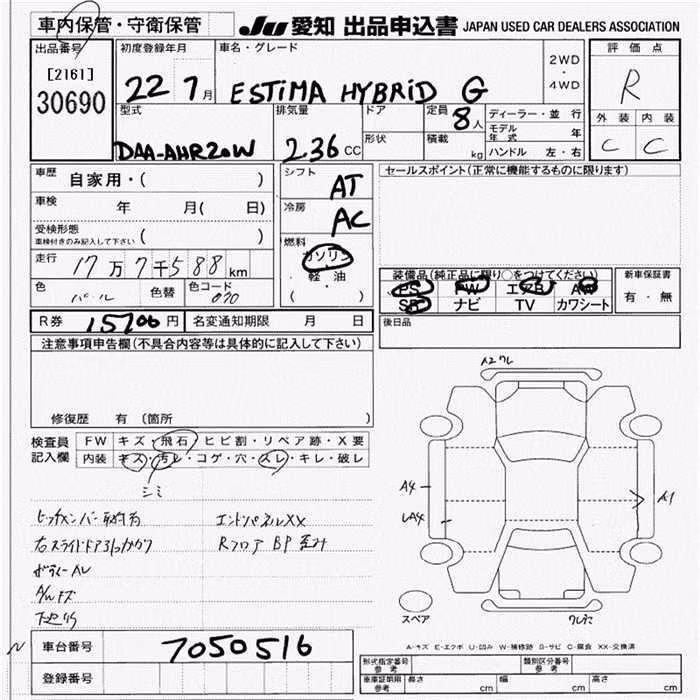 車内保管・守衛保管
JU 愛知 出品申込書 JAPAN USED CAR DEALERS ASSOCIATION
出品番号
[2161]
30690
初度登録年月
22 7月
車名・グレード
ESTIMA HYBRID G
2WD
・
4WD
評価点
R
外装 内装
C C
型式
DAA-AHR20W
排気量
2.36 CC
ドア
形状
定員
8人
積載
kg
ディーラー・並行
モデル年式 年
ハンドル 左・右
車歴 自家用・( )
車検 年 月( 日)
受検形態
車検付きのみ記入して下さい ( )
走行 17万7千588km
色 パール 色替 色コード 070
シフト
AT
冷房
AC
燃料
ガソリン
軽油
( ・ )
セールスポイント(正常に機能するものに限ります)
装備品(純正品に限り○をつけてください)
PS PW エアB AW
SR ナビ TV カワシート
新車保証書
有・無
後日品
R券 15700円 名変通知期限 月 日
注意事項申告欄(不具合内容等は具体的に記入して下さい)
修復歴 有 (箇所 )
検査員
記入欄
FW キズ・飛石・ヒビ割・リペア跡・X要
内装 キズ・汚レ・コゲ・穴・スレ・キレ・破レ
シミ
エンドパネルXX
右スライドドア引っかかり RフロアBP歪み
A2 ワレ
A4
A1
スペア
A-キズ E-エクボ U-凹み W-補修跡 S-サビ C-腐食 XX-交換済
N 車台番号 7050516
登録番号
形式指定番号
参考
類別区分番号
参考
車庫証明用
参考
長さ cm 幅 cm 高さ cm